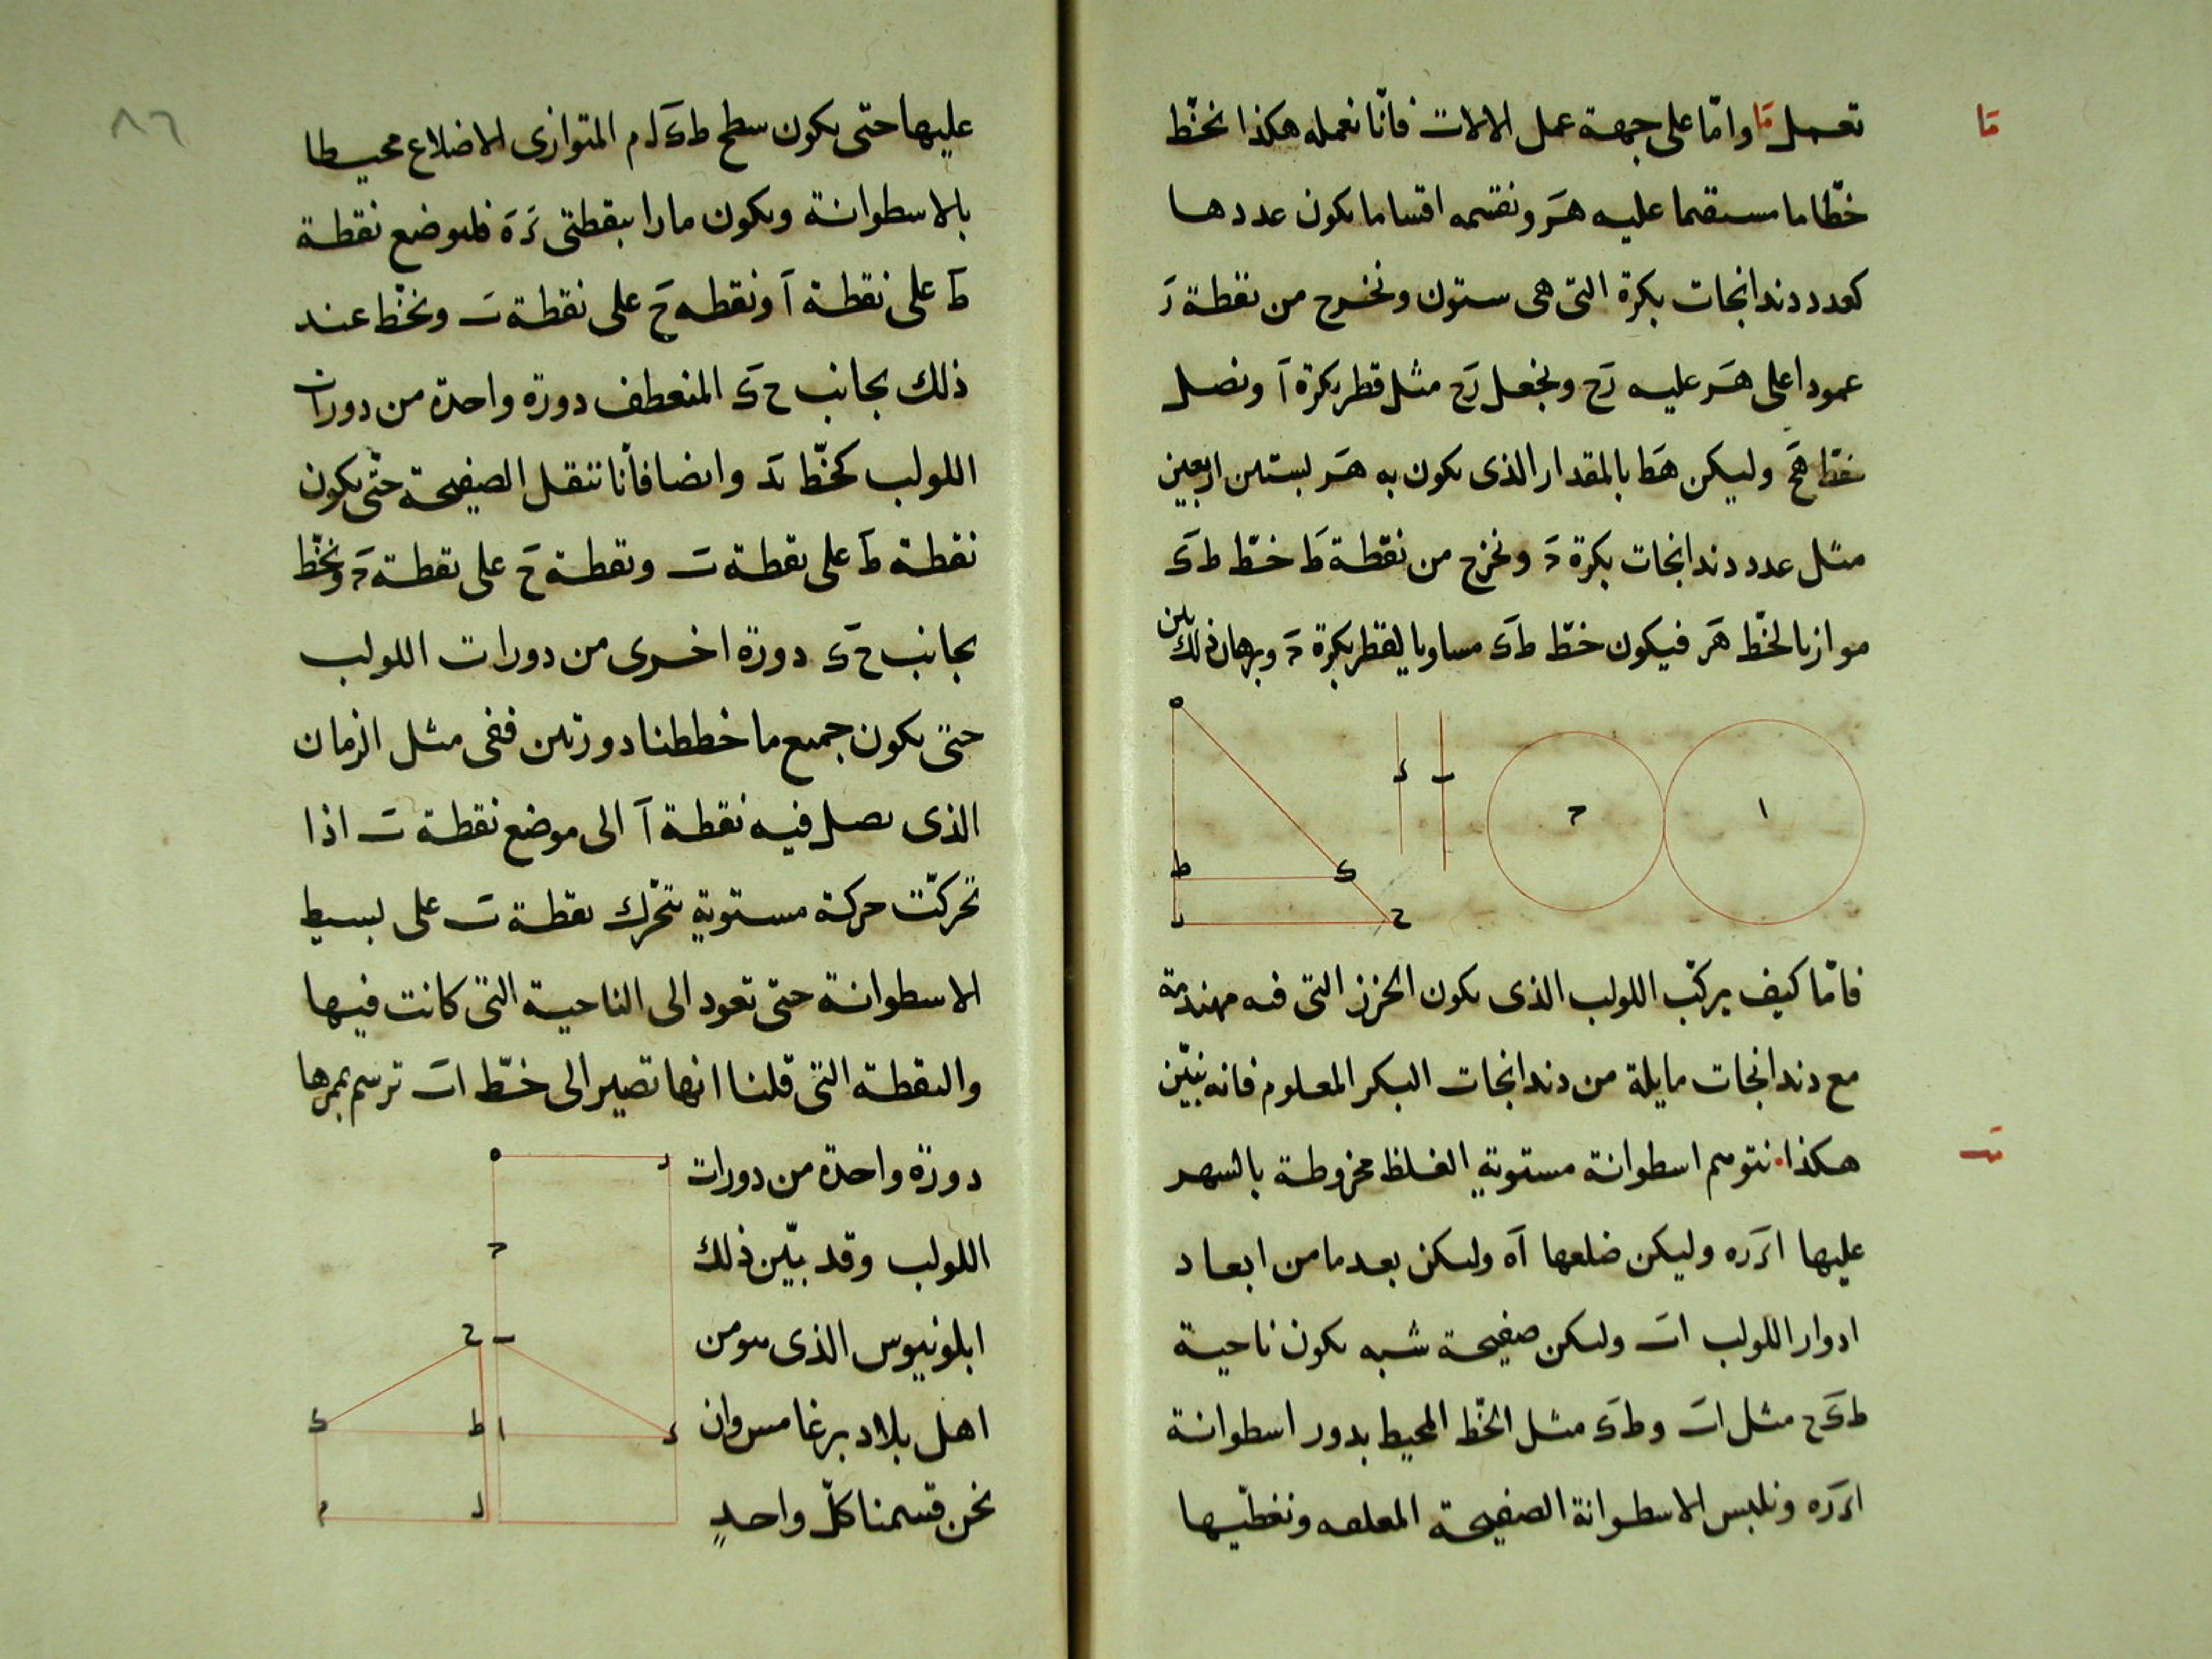 تعمل قا واما على جهة عمل الالات فانّا نعمله هكذا نخطّ
قا
خطّا ما مستقيما عليه هَـز ونقسمه اقساما يكون عددها
كعدد دندانجات بكرة التى هى ستون ونخرج من نقطة زَ
عمودا على هَـز عليه زَح ونجعل زَح مثل قطر بكرة آ ونصل
خطّ هَح وليكن هَط بالمقدار الذى يكون به هَـز لستين اربعين
مثل عدد دندانجات بكرة حَ ونخرج من نقطة طَ خطّ طَ ىَ
موازيا لخطّ هَز فيكون خطّ طَ ىَ مساويا لقطر بكرة حَ وبرهان ذلك بين
ه
ط
ى
ر
ح
د
ب
ح
ا
فامّا كيف يركّب اللولب الذى يكون الخزز التى فيه مهندمة
مع دندانجات مايلة من دندانجات البكر المعلوم فانه نبيّن
هكذا نتوهم اسطوانة مستوية الغلظ مخروطة بالشهر
عليها ازَره وليكن ضلعها آه وليكن بعد ما من ابعاد
ادوار اللولب اب وليكن صفيحة شبه يكون ناحية
طَىَح مثل اب وطَىَ مثل الخطّ المحيط بدور اسطوانة
ازَره ونلبس الاسطوانة الصفيحة ونغطّيها
٨٦
عليها حتى يكون سطح طَ ىَ لَ م المتوازى الاضلاع محيطا
بالاسطوانة ويكون مارا بنقطتى زَ هَ فليوضع نقطة
طَ على نقطة آ ونقطه حَ على نقطة بَ ونخّط عند
ذلك بجانب ح ىَ المنعطف دورة واحدة من دورات
اللولب كخّط بَد وايضا فانّا ننقل الصفيحة حتّى يكون
نقطة طَ على نقطة بَ ونقطة حَ على نقطة حَ ونخّط
بجانب ح ىَ دورة اخرى من دورات اللولب
حتى يكون جميع ما خططنا دورتين ففى مثل الزمان
الذى يصل فيه نقطة آ الى موضع نقطة بَ اذا
تحركّت حركة مستوية تتحرّك نقطة بَ على بسيط
الاسطوانة حتى تعود الى الناحية التى كانت فيها
والنقطة التى قلنا انها تصير الى خطّ اب ترسم بممرها
دورة واحدة من دورات
اللولب وقد بيّن ذلك
ابلونيوس الذى هو من
اهل بلاد برغامس وان
نحن قسمنا كلّ واحدٍ
ه
ر
ح
ح
ب
ى
ط
ا
د
م
ل